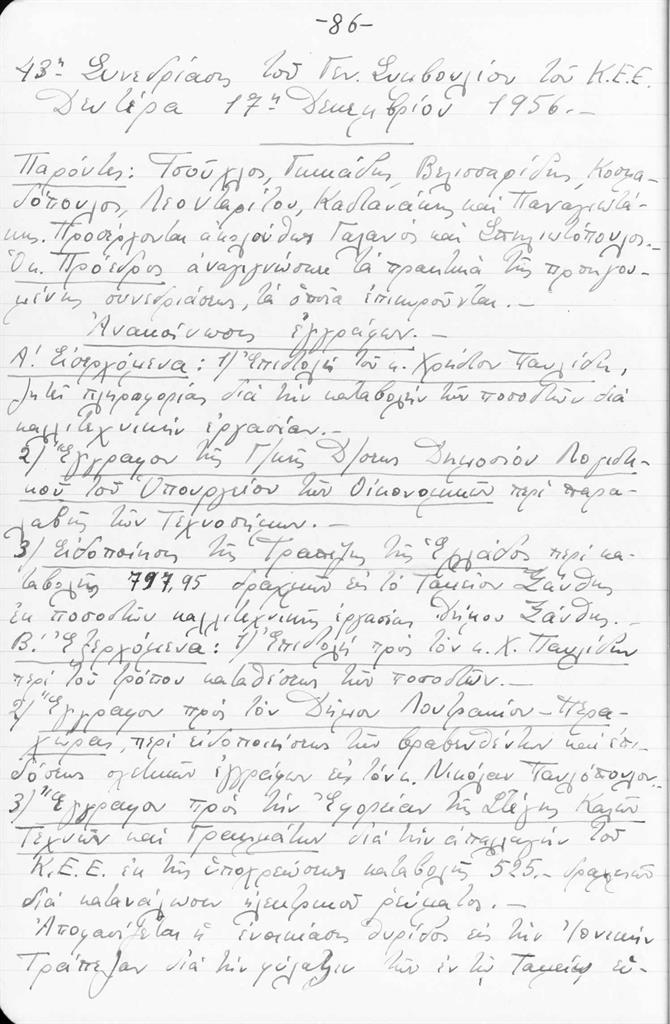 -86-
43η Συνεδρίασις τοῦ Γεν. Συμβουλίου τοῦ Κ.Ε.Ε.
Δευτέρα 17η Δεκεμβρίου 1956.-
Παρόντες: Τσοῦχλος, Γιμιάδης, Βελισσαρίδης, Κοσμα-
δόπουλος, Λεονταρίτου, Καστανάκης καὶ Παναγιωτά-
κης. Προσέρχονται ἀκολούθως Γαλανὸς καὶ Σπηλιωτόπουλος.-
Ὁ κ. Πρόεδρος ἀναγιγνώσκει τὰ πρακτικὰ τῆς προηγου-
μένης συνεδριάσεως, τὰ ὁποῖα ἐπικυροῦνται.-
Ἀνακοίνωσις ἐγγράφων.-
Α! Εἰσερχόμενα: 1) Ἐπιστολὴ τοῦ κ. Χρήστου Παυλίδη,
ζητεῖ πληροφορίας διὰ τὴν καταβολὴν τῶν ποσοστῶν διὰ
καλλιτεχνικὴν ἐργασίαν.-
2) Ἔγγραφον τῆς Γ/κῆς Δ/σεως Δημοσίου Λογιστι-
κοῦ τοῦ Ὑπουργείου τῶν Οἰκονομικῶν περὶ παρα-
λαβῆς τῶν Τεχνοσήμων.-
3) Εἰδοποίησις τῆς Τραπέζης τῆς Ἑλλάδος περὶ κα-
ταβολῆς 797,95 δραχμῶν εἰς τὸ Ταμεῖον Ξάνθης
ἐκ ποσοστῶν καλλιτεχνικῆς ἐργασίας Δήμου Ξάνθης.-
Β! Ἐξερχόμενα: 1) Ἐπιστολὴ πρὸς τὸν κ. Χ. Παυλίδην
περὶ τοῦ τρόπου καταθέσεως τῶν ποσοστῶν.-
2) Ἔγγραφον πρὸς τὸν Δῆμον Λουτρακίου-Περα-
χώρας, περὶ εἰδοποιήσεως τῶν βραβευθέντων καὶ ἐπι-
δόσεως σχετικῶν ἐγγράφων εἰς τὸν κ. Νικόλαν Παυλόπουλον.-
3) Ἔγγραφον πρὸς τὴν Ἐφορείαν τῆς Στέγης Καλῶν
Τεχνῶν καὶ Γραμμάτων διὰ τὴν ἀπαλλαγὴν τοῦ
Κ.Ε.Ε. ἐκ τῆς ὑποχρεώσεως καταβολῆς 525.- δραχμῶν
διὰ κατανάλωσιν ἠλεκτρικοῦ ρεύματος.-
Ἀποφασίζεται ἡ ἐνοικίασις θυρίδος εἰς τὴν Ἐθνικὴν
Τράπεζαν διὰ τὴν φύλαξιν τῶν ἐν τῷ Ταμείῳ εὑ-